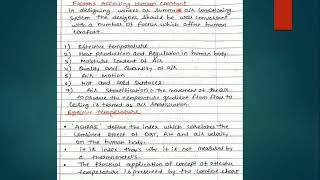 Factors Affecting Human Comfort
In designing winter or summer air conditioning
system the designer should be well conversant
with a number of factors which affect human
comfort
1) Effective temperature
2) Heat production and Regulation in human body.
3) Moisture content of Air
4) Quality and Quantity of air
5) Air motion
6) Hot and cold surfaces.
7) Air Stratification :- The movement of the air
to produce the temperature gradient from floor to
ceiling is termed as air stratification.
Effective temperature
• ASHRAE define the index which correlates the
combined effect of DBT, RH and air velocity
on the human body.
• it is index thats why it is not measured by
a thermometers.
• The practical application of concept of effective
temperature is presented by the comfort chart